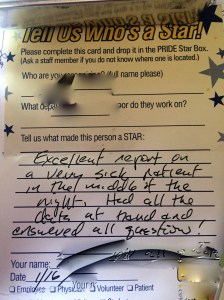 Tell Us Who's a Star!
Please complete this card and drop it in the PRIDE Star Box.
(Ask a staff member if you do not know where one is located.)
Who are you (full name please)
What depa or do they work on?
Tell us what made this person a STAR:
Excellent report on
a very sick patient
in the middle of the
night. Had all the
data at hand and
answered all questions!
Your name:
Date 1/16 Your
Employee Physici Volunteer Patient